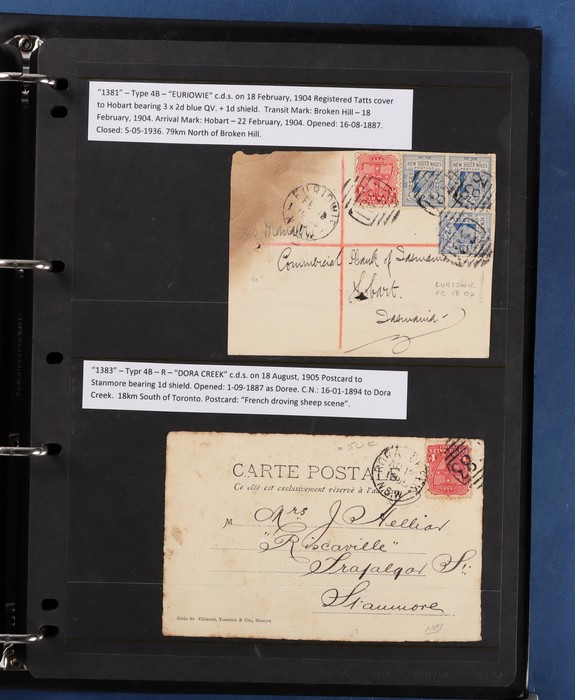 "1381" – Type 4B – "EURIOWIE" c.d.s. on 18 February, 1904 Registered Tatts cover
to Hobart bearing 3 x 2d blue QV. + 1d shield.  Transit Mark: Broken Hill – 18
February, 1904. Arrival Mark: Hobart – 22 February, 1904. Opened: 16-08-1887.
Closed: 5-05-1936. 79km North of Broken Hill.
EURIOWIE
NEW SOUTH WALES
NEW SOUTH WALES
Commercial Bank of Tasmania
Hobart.
Tasmania
EURIOWIE
FE 18 04
"1383" – Typr 4B – R – "DORA CREEK" c.d.s. on 18 August, 1905 Postcard to
Stanmore bearing 1d shield. Opened: 1-09-1887 as Doree. C.N.: 16-01-1894 to Dora
Creek.  18km South of Toronto. Postcard: "French droving sheep scene".
CARTE POSTA
Ce côté est exclusivement réservé à l'a
N.S.W
M Mrs J Hellior
"Riscaville"
Trafalgar St
Stanmore
1383